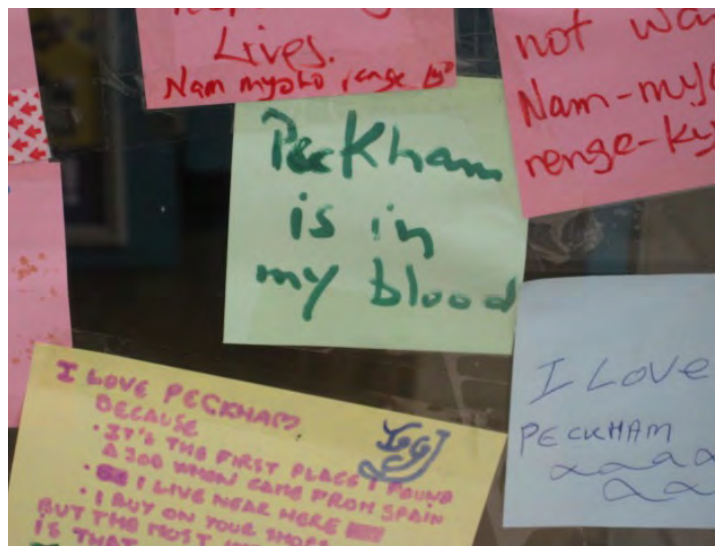 Lives.
Nam myoho renge kyo
not wa
Nam-myo
renge-ky
Peckham
is in
my blood
I LOVE
PECKHAM
I LOVE PECKHAM
BECAUSE
• IT'S THE FIRST PLACE I FOUND
A JOB WHEN CAME FROM SPAIN
• I LIVE NEAR HERE
• I BUY ON YOUR SHOPS
BUT THE MOST
IS THAT